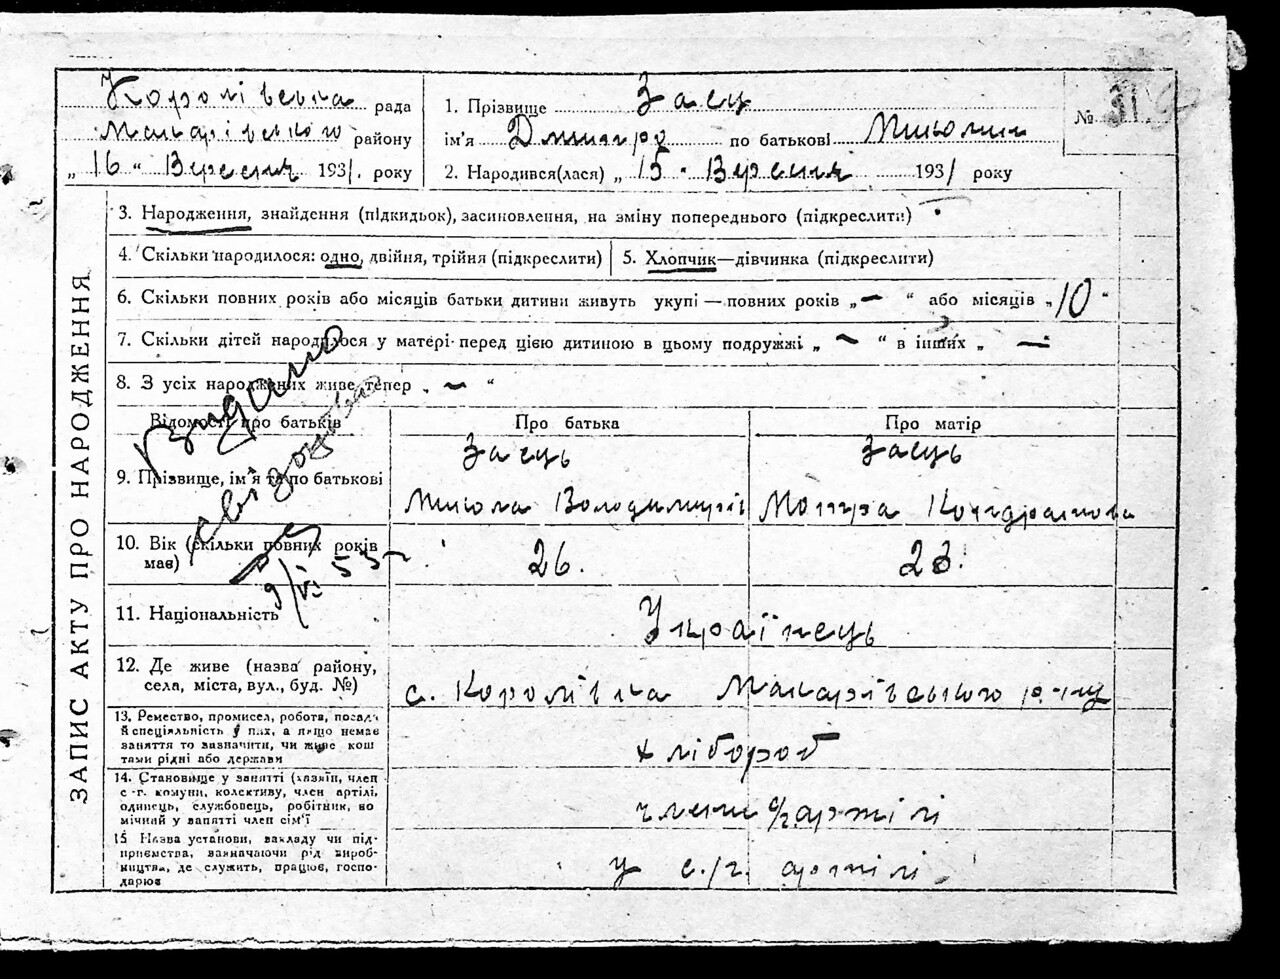 Королівська рада
Макарівського району
„ 16 “ Вересня 1931. року
1. Прізвище Заєц
ім'я Дмитро по батькові Миколин
2. Народився(лася) „ 15 “ Вересня 1931 року
№ 31
ЗАПИС АКТУ ПРО НАРОДЖЕННЯ
3. Народження, знайдення (підкидьок), засиновлення, на зміну попереднього (підкреслити)
4. Скільки народилося: одно, двійня, трійня (підкреслити)
5. Хлопчик—дівчинка (підкреслити)
6. Скільки повних років або місяців батьки дитини живуть укупі — повних років „ — “ або місяців „ 10 “
7. Скільки дітей народилося у матері перед цією дитиною в цьому подружжі „ — “ в інших „ —
8. З усіх народжених живе тепер „ — “
Видано
свідоцтво
9/VI 55
Відомості про батьків
Про батька
Про матір
9. Прізвище, ім'я та по батькові
Заєць
Микола Володимирів
Заєць
Мотря Кондратова
10. Вік (скільки повних років
має)
26.
23.
11. Національність
Українець
12. Де живе (назва району,
села, міста, вул., буд. №)
с. Королівка Макарівського р-ну
13. Ремество, промисел, робота, посада
й спеціяльність у них, а якщо немає
заняття то зазначити, чи живе кош
тами рідні або держави
хлібороб
14. Становище у занятті (хазяїн, член
с.-г. комуни, колективу, член артілі,
одинець, службовець, робітник, по
мічний у занятті член сім'ї
член с/г артілі
15 Назва установи, закладу чи під-
приємства, зазначаючи рід вироб-
ництва, де служить, працює, госпо-
дарює
у с./г. артілі